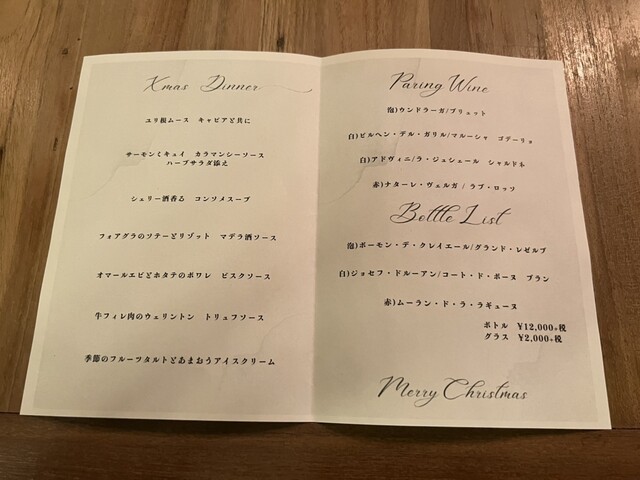 Xmas Dinner
ユリ根ムース　キャビアと共に
サーモンミキュイ　カラマンシーソース
ハーブサラダ添え
シェリー酒香る　コンソメスープ
フォアグラのソテーとリゾット　マデラ酒ソース
オマールエビとホタテのポワレ　ビスクソース
牛フィレ肉のウェリントン　トリュフソース
季節のフルーツタルトとあまおうアイスクリーム
Paring Wine
泡)ウンドラーガ/ブリュット
白)ビルヘン・デル・ガリル/マルーシャ　ゴデーリョ
白)アドヴィニ/ラ・ジュシェール　シャルドネ
赤)ナターレ・ヴェルガ / ラブ・ロッソ
Bottle List
泡)ボーモン・デ・クレイエール/グランド・レゼルブ
白)ジョセフ・ドルーアン/コート・ド・ボーヌ　ブラン
赤)ムーラン・ド・ラ・ラギューヌ
ボトル　¥12,000+税
グラス　¥2,000+税
Merry Christmas